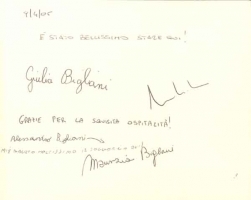 4/4/05
È STATO BELLISSIMO STARE QUI!
Giulia Bigliani
GRAZIE PER LA SQUISITA OSPITALITÀ!
Alessandro Bigliani
Maurizio Bigliani